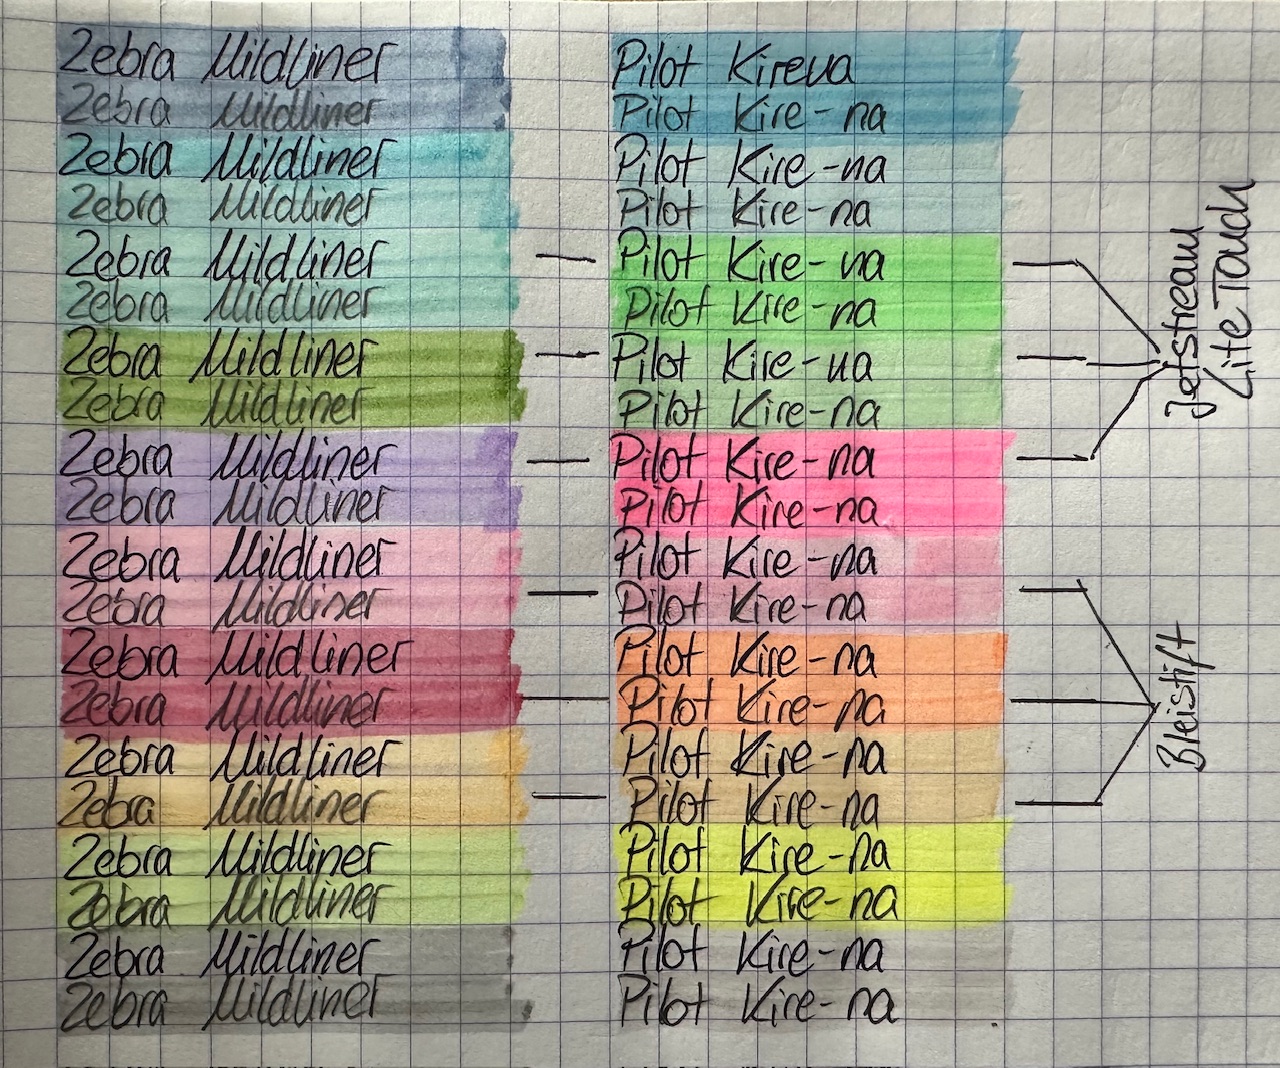 Zebra Mildliner Pilot Kirena
Zebra Mildliner Pilot Kire-na
Zebra Mildliner Pilot Kire-na
Zebra Mildliner Pilot Kire-na
Zebra Mildliner Pilot Kire-na
Zebra Mildliner Pilot Kire-na
Zebra Mildliner Pilot Kire-na
Zebra Mildliner Pilot Kire-na
Zebra Mildliner Pilot Kire-na
Zebra Mildliner Pilot Kire-na
Zebra Mildliner Pilot Kire-na
Zebra Mildliner Pilot Kire-na
Zebra Mildliner Pilot Kire-na
Zebra Mildliner Pilot Kire-na
Zebra Mildliner Pilot Kire-na
Zebra Mildliner Pilot Kire-na
Zebra Mildliner Pilot Kire-na
Zebra Mildliner Pilot Kire-na
Zebra Mildliner Pilot Kire-na
Zebra Mildliner Pilot Kire-na
Jetstream
Lite Touch
Bleistift